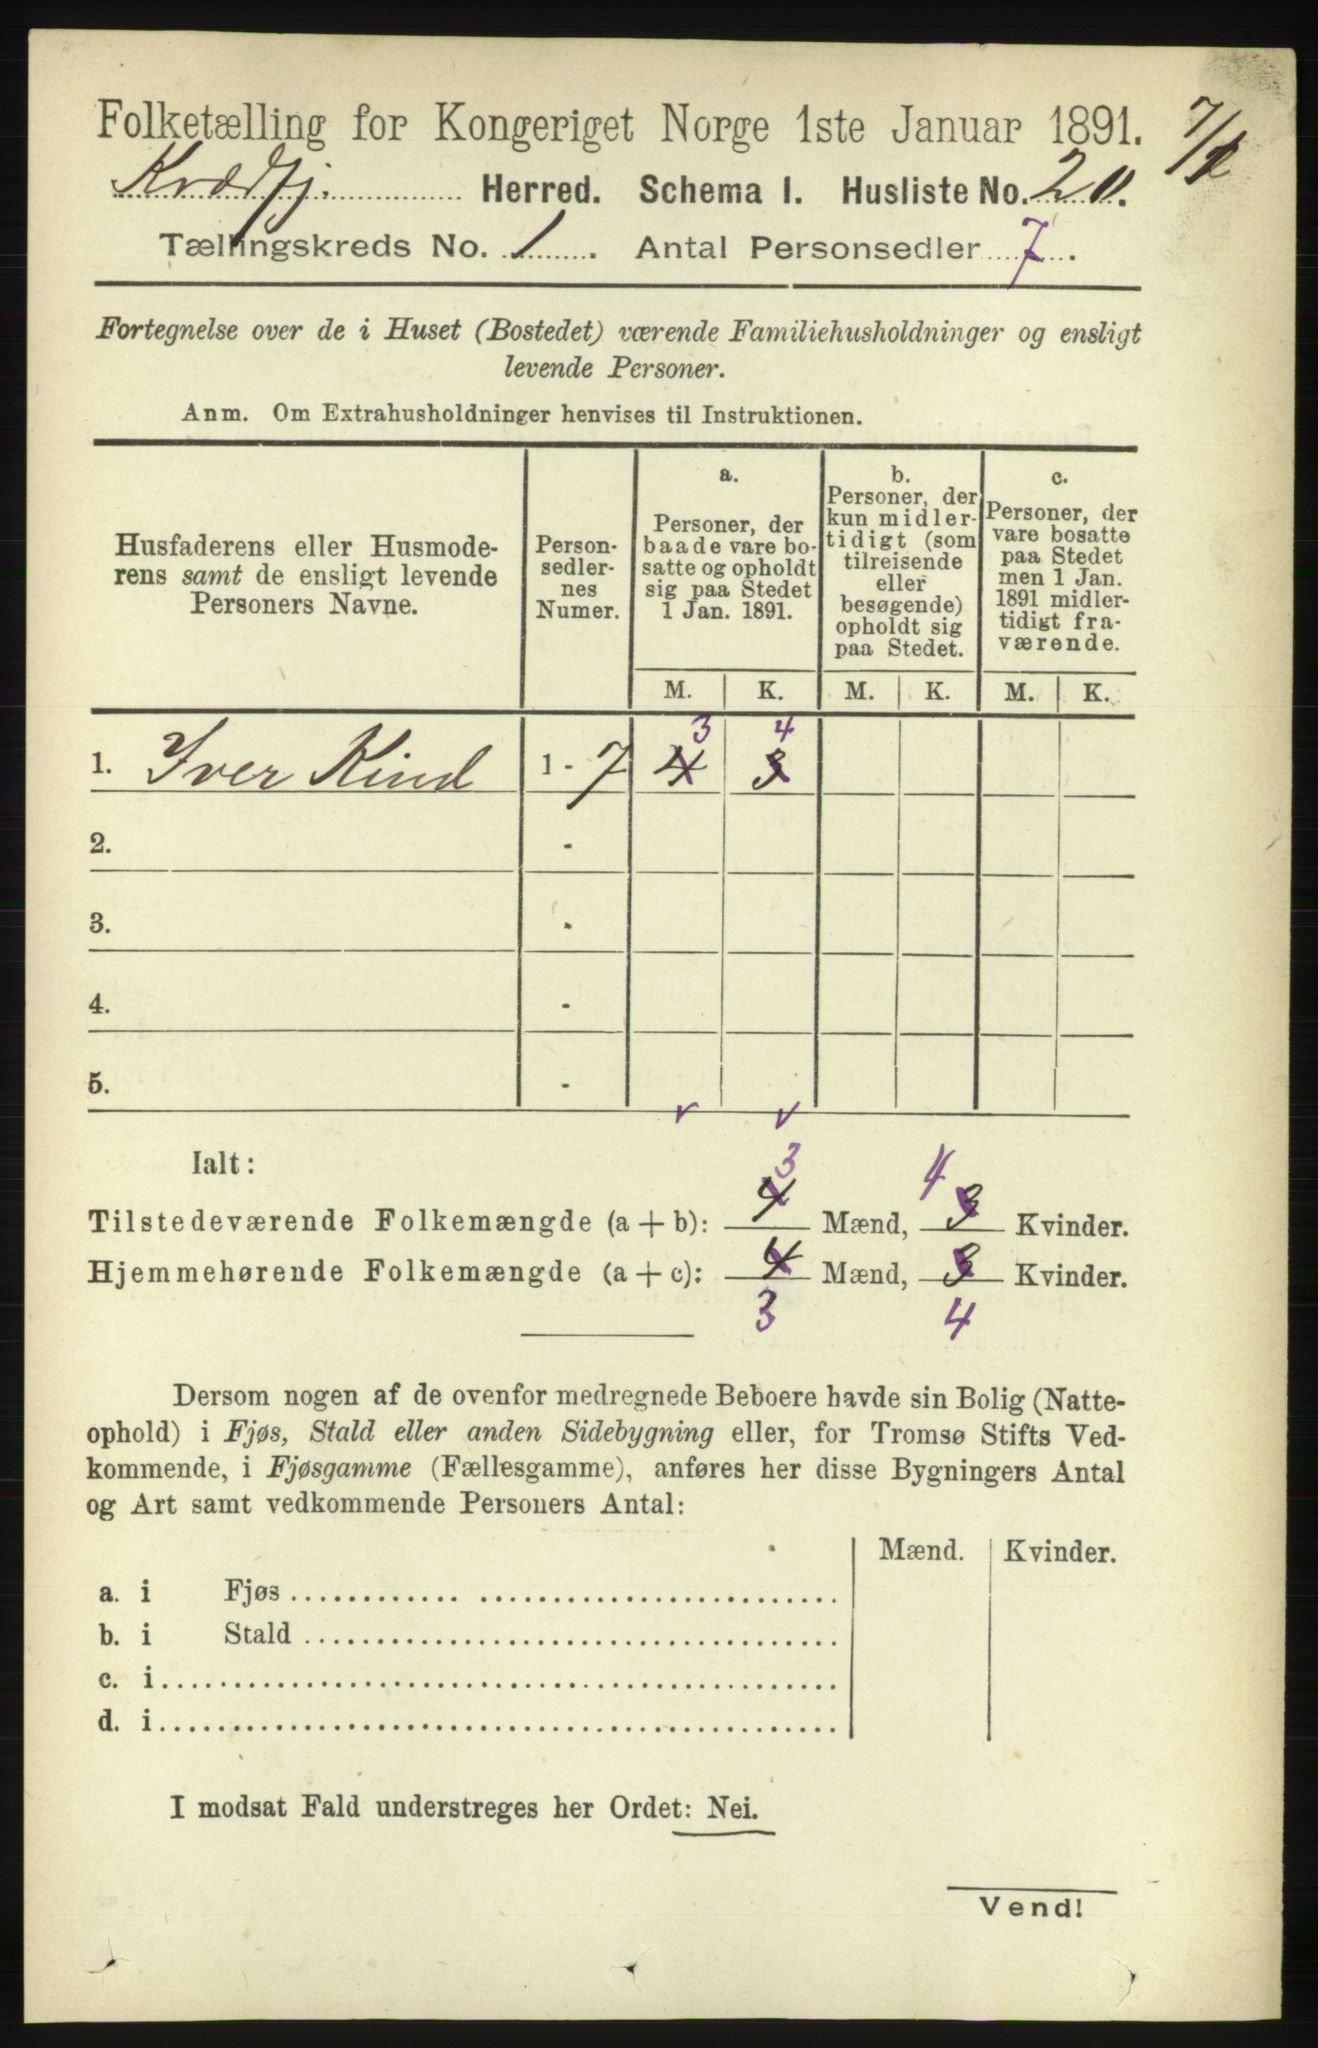 Folketælling for Kongeriget Norge 1ste Januar 1891. 7/
Kvædfj. Herred. Schema I. Husliste No. 20.
Tællingskreds No. 1. Antal Personsedler 7.
Fortegnelse over de i Huset (Bostedet) værende Familiehusholdninger og ensligt
levende Personer.
Anm. Om Extrahusholdninger henvises til Instruktionen.
Husfaderens eller Husmode-
rens samt de ensligt levende
Personers Navne.
Person-
sedler-
nes
Numer.
a.
Personer, der
baade vare bo-
satte og opholdt
sig paa Stedet
1 Jan. 1891.
b.
Personer, der
kun midler-
tidigt (som
tilreisende
eller
besøgende)
opholdt sig
paa Stedet.
c.
Personer, der
vare bosatte
paa Stedet
men 1 Jan.
1891 midler-
tidigt fra-
værende.
M. K. M. K. M. K.
3 4
1. Iver Kind 1 - 7 4 3
2. -
3. -
4. -
5. -
v v
Ialt:
3 4
Tilstedeværende Folkemængde (a + b): 4 Mænd, 3 Kvinder.
Hjemmehørende Folkemængde (a + c): 4 Mænd, 3 Kvinder.
3 4
Dersom nogen af de ovenfor medregnede Beboere havde sin Bolig (Natte-
ophold) i Fjøs, Stald eller anden Sidebygning eller, for Tromsø Stifts Ved-
kommende, i Fjøsgamme (Fællesgamme), anføres her disse Bygningers Antal
og Art samt vedkommende Personers Antal:
Mænd. Kvinder.
a. i Fjøs
b. i Stald
c. i
d. i
I modsat Fald understreges her Ordet: Nei.
Vend!